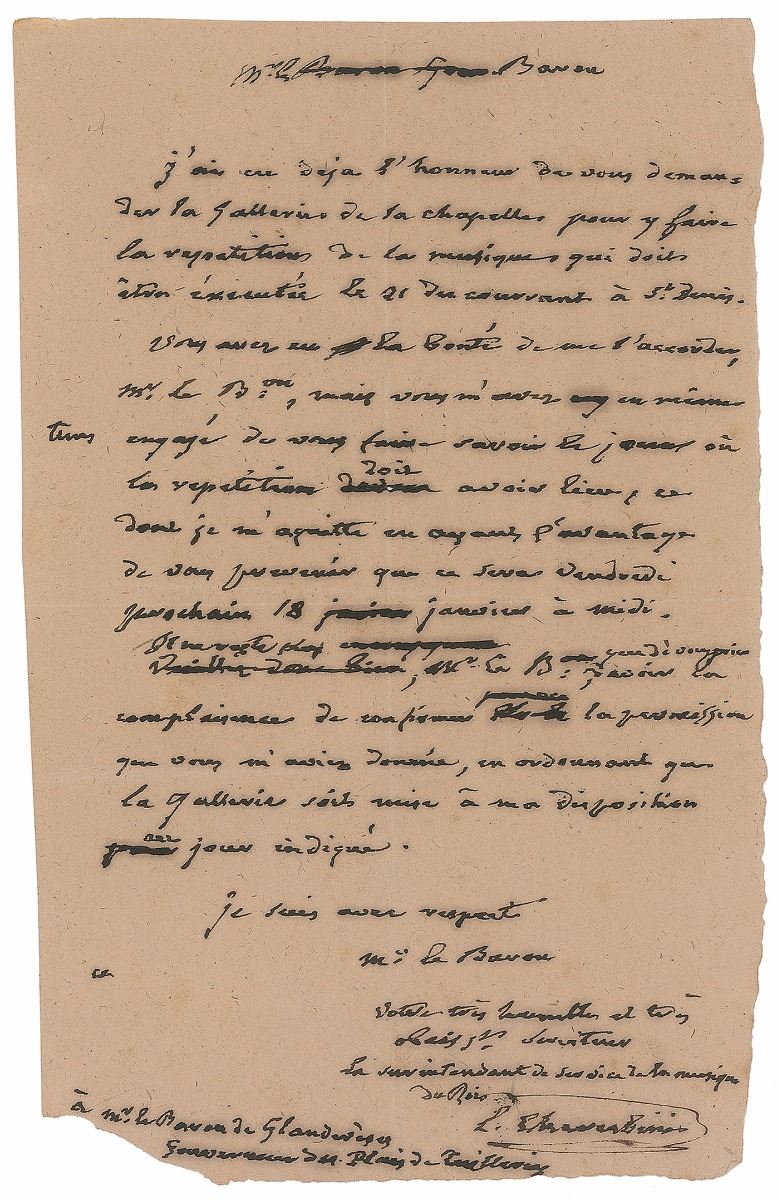 Mr le Baron
j'ai eu deja l'honneur de vous deman=
der la Gallerie de la chapelle pour y faire
la repetition de la musique qui doit
être éxecutée le 21 du courrant à St Denis.
Vous avez eu la bonté de me l'accorder,
Mr le Bon, mais vous m'avez en même
tems engagé de vous faire savoir le jour où
la repetition doit avoir lieu, ce
dont je m'aquitte en ayant l'avantage
de vous prevenir que ce sera Vendredi
prochain 18 janvier à midi.
Il ne reste Mr le Bon que de vous prier
d'avoir la
complaisance de confirmer la permission
que vous m'aviez donnée, en ordonnant que
la Gallerie soit mise à ma disposition
au jour indiqué.
je suis avec respect
Mr le Baron
Votre très humble et très
obeisst serviteur
Le surintendant de service de la musique
du Roi
L. Cherubini
à Mr le Baron de Glandevès
Gouverneur des Plais de Tuilleries